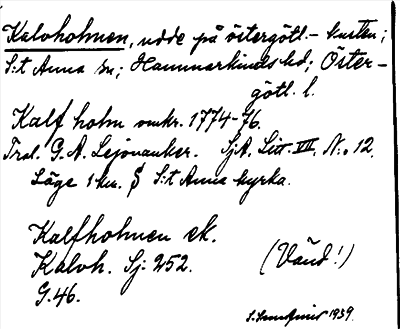 Kalvholmen, udde på östergötl.- kusten;
S:t Anna sn; Hammarkinds hd; Öster-
götl. l.
Kalf holm omkr. 1774-76.
Trol. G. A. Lejonanker. SjA. Litt. VIII. N:o 12.
Läge 1 km. S S:t Anna kyrka.
Kalfholmen ek.
Kalvh. Sj: 252. (Vänd!)
G.46.
1939.